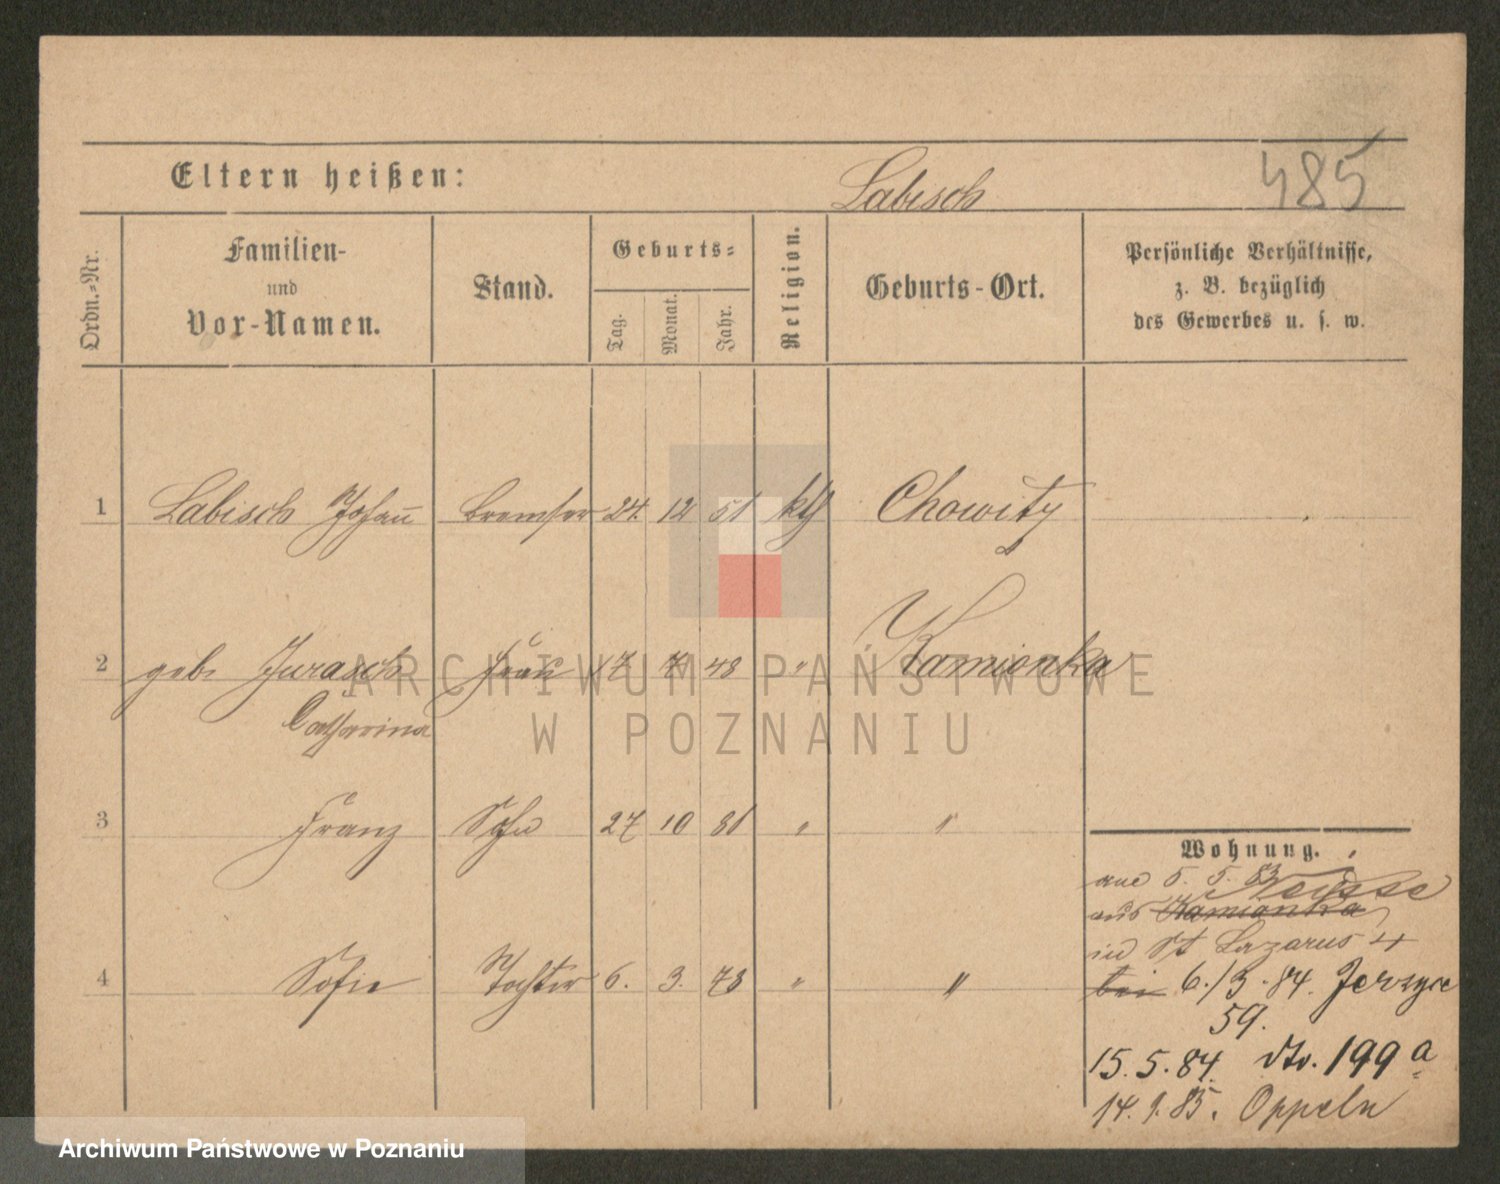 485
Eltern heißen: Labisch
Ordn.-Nr.
Familien-
und
Vor-Namen.
Stand.
Geburts-
Tag.
Monat.
Jahr.
Religion.
Geburts-Ort.
Persönliche Verhältnisse,
z. B. bezüglich
des Gewerbes u. s. w.
1 Labisch Johann Bremser 24. 12 51 kth Chowity
2 geb. Jurasch Frau 17 7 48 " Kamionka
Catharina
3 Franz Sohn 27 10 81 " "
4 Sofie Tochter 6. 3. 78 " "
Wohnung.
am 5. 5. 83 Neisse
aus Kamionka
in St Lazarus 4
bei 6./3.84. Jerzyce
59.
15.5.84. dto. 199 a
14.9.85. Oppeln
ARCHIWUM PAŃSTWOWE
W POZNANIU
Archiwum Państwowe w Poznaniu